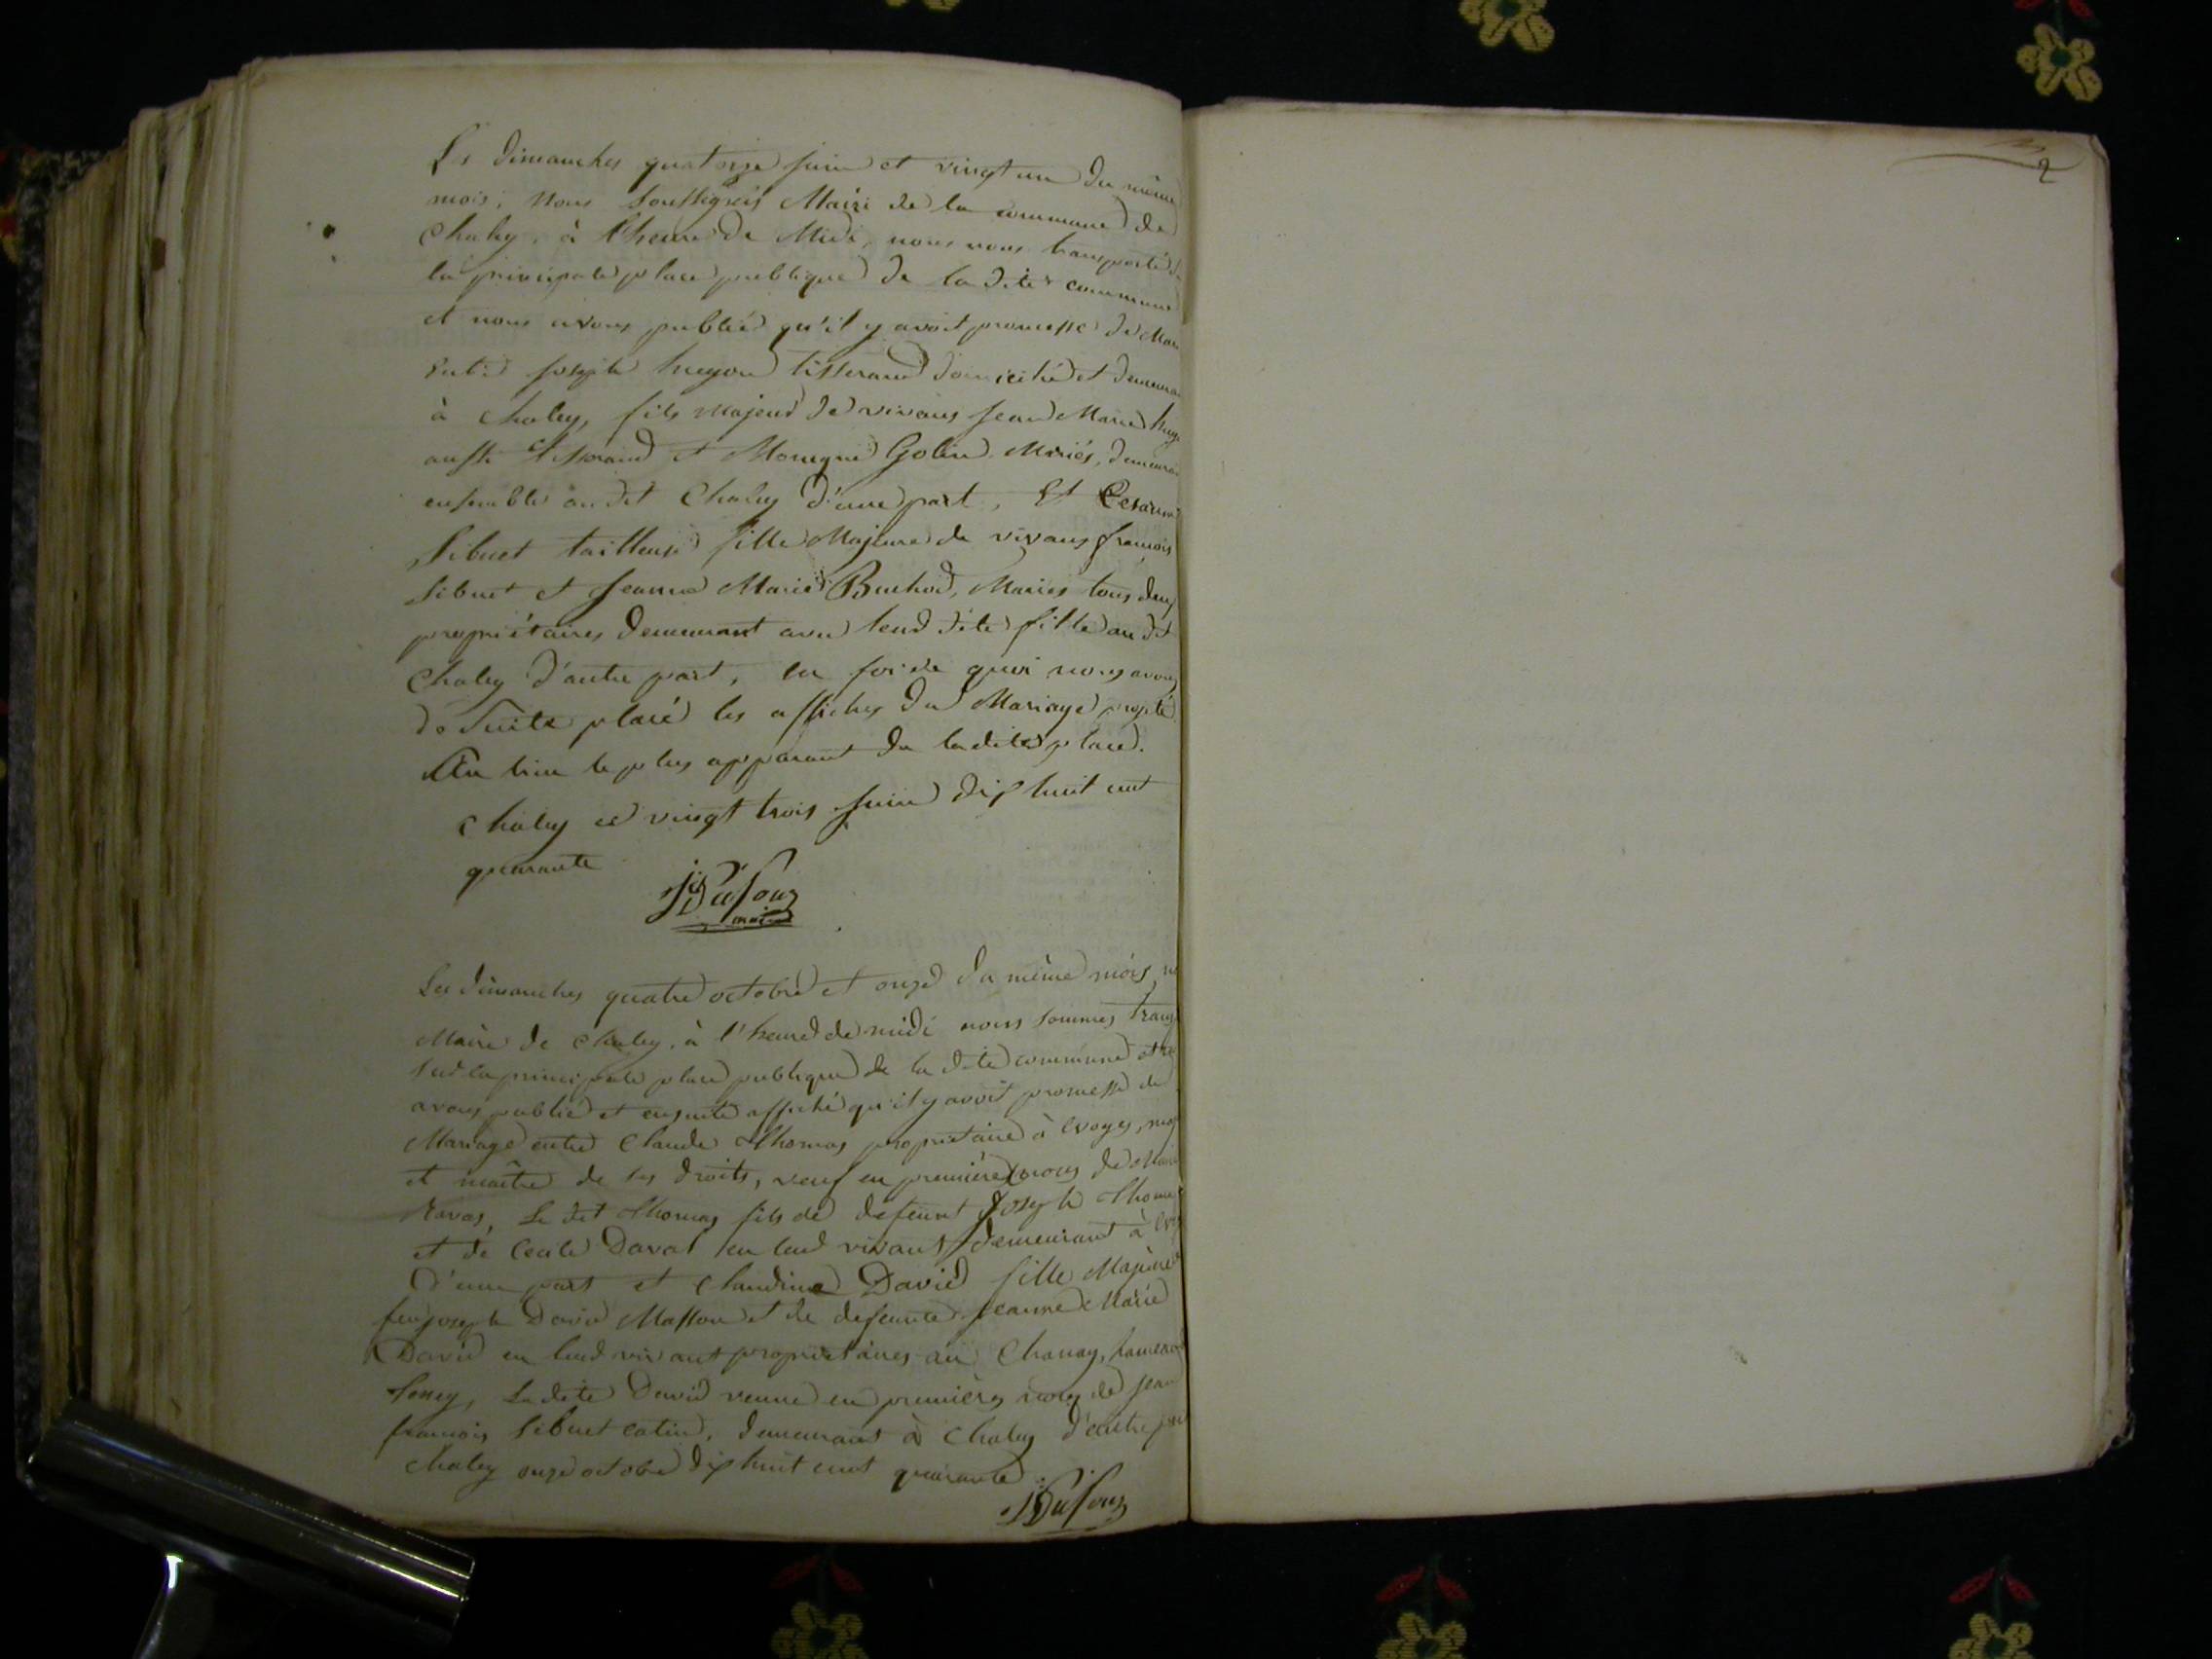 2
Les dimanches quatorze juin et vingt un du même
mois, Nous soussignés Maire de la commune de
Chaley, à l'heure de Midi, nous nous transporté
la principale place publique de la dite commune
et nous avons publié qu'il y avoit promesse de Mari
entre joseph hugon tisserand domicilié et demeuran
à Chaley, fils majeur de vivans jean Marie hugo
aussi tisserand et Golin Mariés, demeuran
ensemble au dit Chaley d'une part, Et Cesarine
Sibuet tailleuse fille Majeure de vivans françois
Sibuet et jeanne Marie Buchod, Mariés tous deux
propriétaires demeurant avec leur dite fille au dit
Chaley d'autre part, en foi de quoi nous avons
de suite placé les affiches du Mariage projeté
Au lieu le plus apparant de la dite place.
Chaley ce vingt trois juin dix huit cent
quarante
JDufour
maire
Les dimanches quatre octobre et onze du même mois, n
Maire de Chaley, à l'heure de midi nous sommes transp
sur la principale place publique de la dite commune et
avons publié et ensuite affiché qu'il y avoit promesse de
Mariage entre Claude Thomas propriétaire à Evoges, maj
et maître de ses droits, veuf en première noces de Marie
Ravas, Le dit Thomas fils de defeunt Joseph Thomas
et de Cecile Daval en leur vivant demeurant à Evo
d'une part et Claudine David fille Majeure
feu joseph David Masson et de defeunte jeanne Marie
David en leur vivant propriétaires au Chanay, hameau
Loney, La dite David veuve en premières noces de jean
françois Sibuet catin, demeurant à Chaley d'autre part
Chaley onze octobre dix huit cent quarante
JDufour